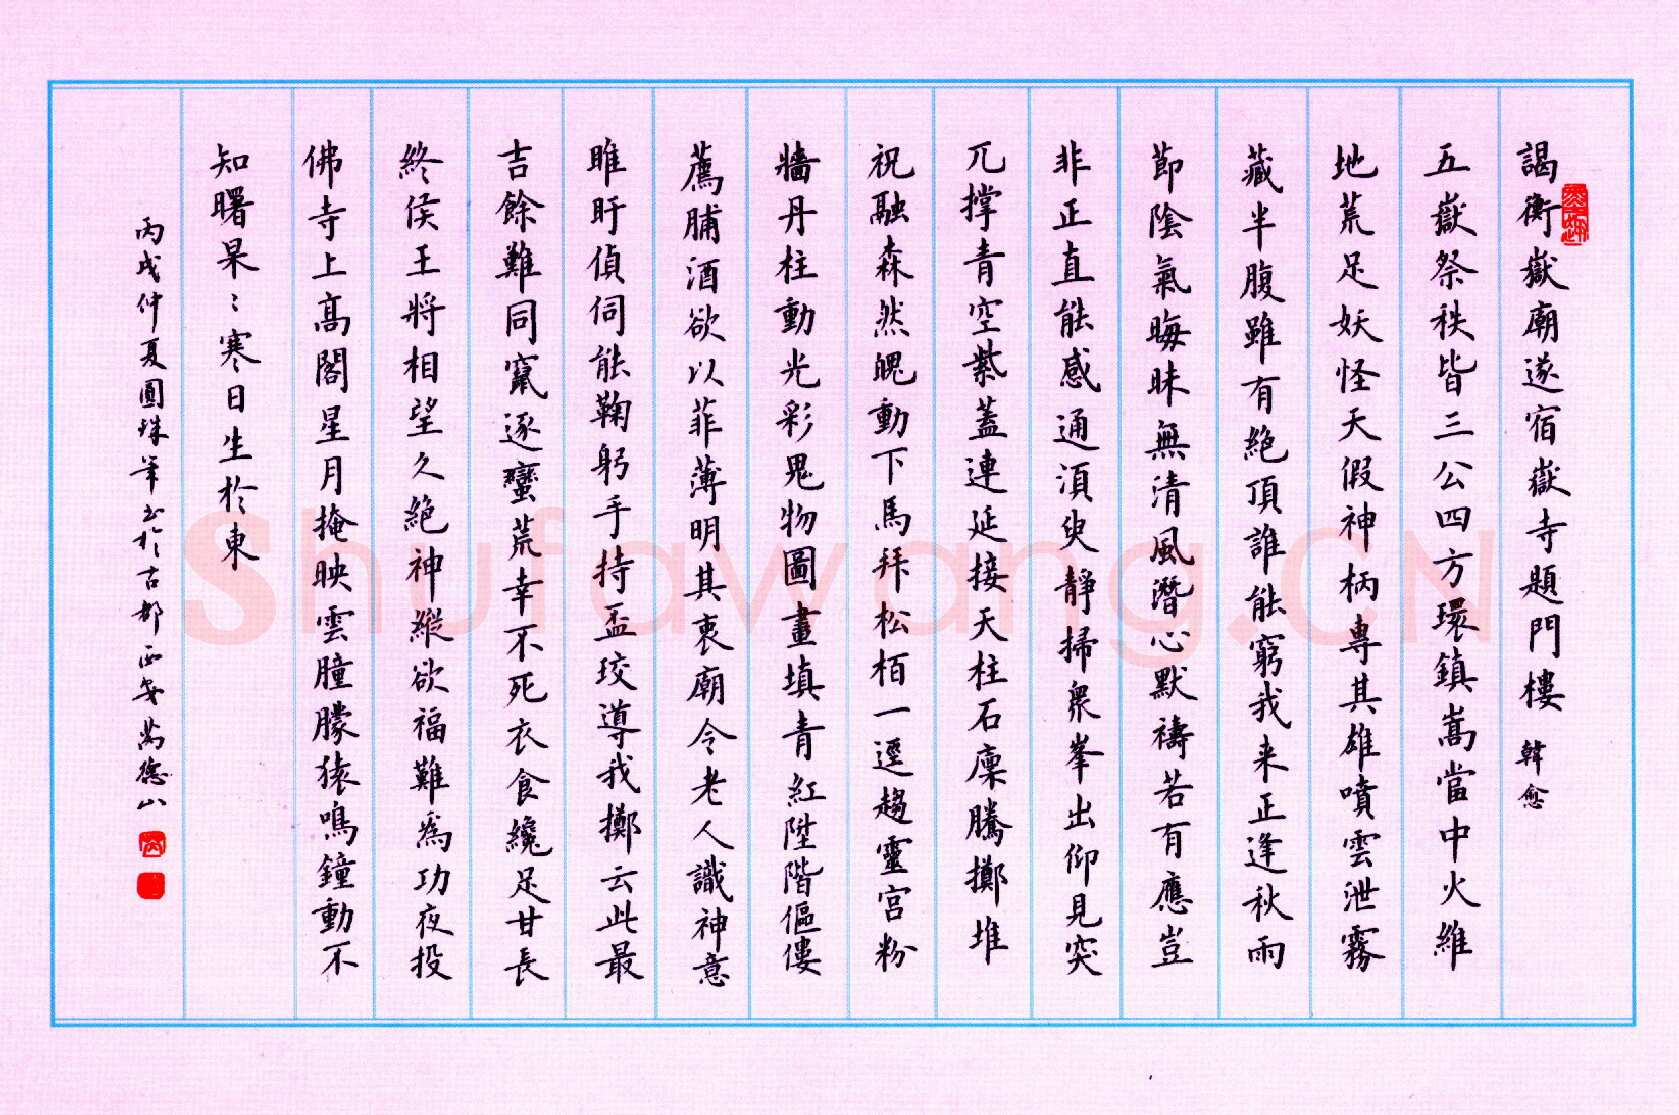 謁衡嶽廟遂宿嶽寺題門樓 韓愈
五嶽祭秩皆三公四方環鎮嵩當中火維
地荒足妖怪天假神柄專其雄噴雲泄霧
藏半腹雖有絶頂誰能窮我来正逢秋雨
節陰氣晦昧無清風潛心默禱若有應豈
非正直能感通湏臾靜掃衆峯出仰見突
兀撑青空紫蓋連延接天柱石廩騰擲堆
祝融森然魄動下馬拜松栢一逕趨靈宫粉
牆丹柱動光彩鬼物圖畫填青紅陞階傴僂
薦脯酒欲以菲薄明其衷廟令老人識神意
睢盱偵伺能鞠躬手持盃珓導我擲云此最
吉餘難同竄逐蠻荒幸不死衣食纔足甘長
終侯王將相望久絶神縱欲福難爲功夜投
佛寺上高閣星月掩映雲朣朦猿鳴鐘動不
知曙杲〻寒日生於東
丙戌仲夏圓珠筆书於古都西安萬德山
Shufawang.CN